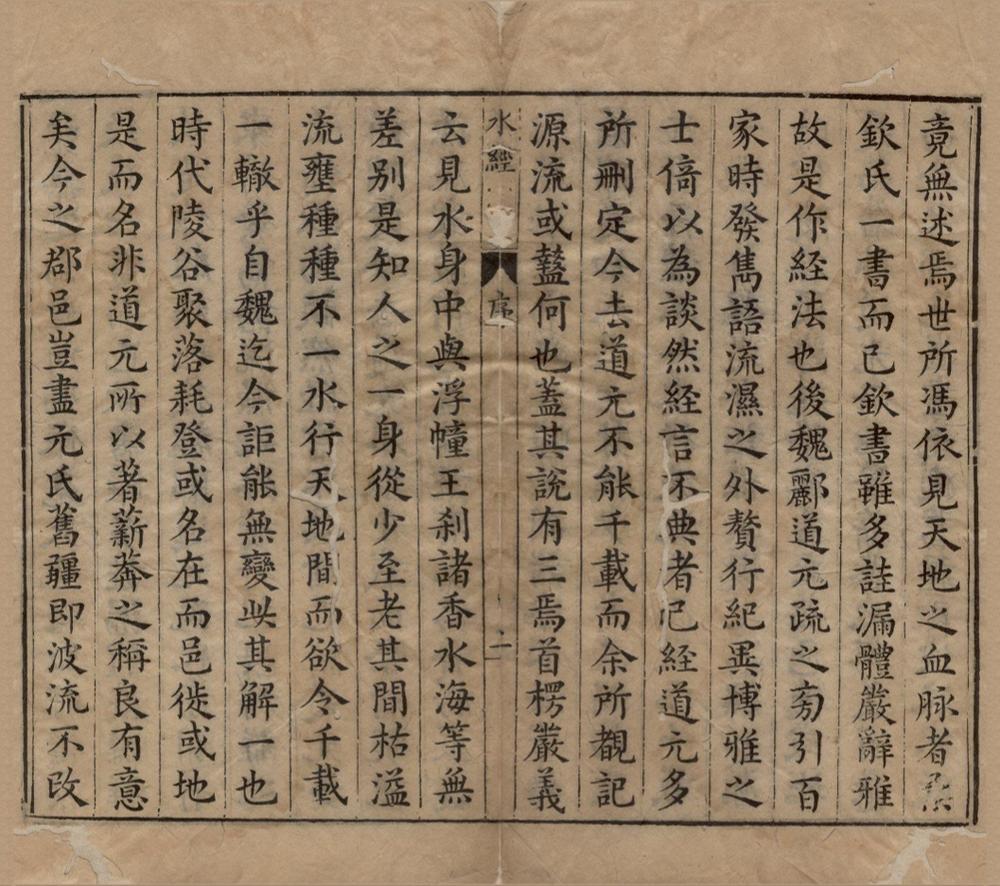 竟無述焉世所馮依見天地之血脉者
欽氏一書而已欽書雖多詿漏體嚴辭雅
故是作経法也後魏酈道元疏之旁引百
家時發雋語流濕之外贅行紀異博雅之
士偣以為談然経言不典者已経道元多
所刪定今去道元不能千載而余所覩記
源流或盭何也蓋其說有三焉首楞嚴義
水經
序
二
云見水身中與浮幢王刹諸香水海等無
差别是知人之一身從少至老其間枯溢
流壅種種不一水行天地間而欲令千載
一轍乎自魏迄今詎能無變此其解一也
時代陵谷聚落耗登或名在而邑徙或地
是而名非道元所以著薪莾之稱良有意
矣今之郡邑豈盡元氏舊疆即波流不改